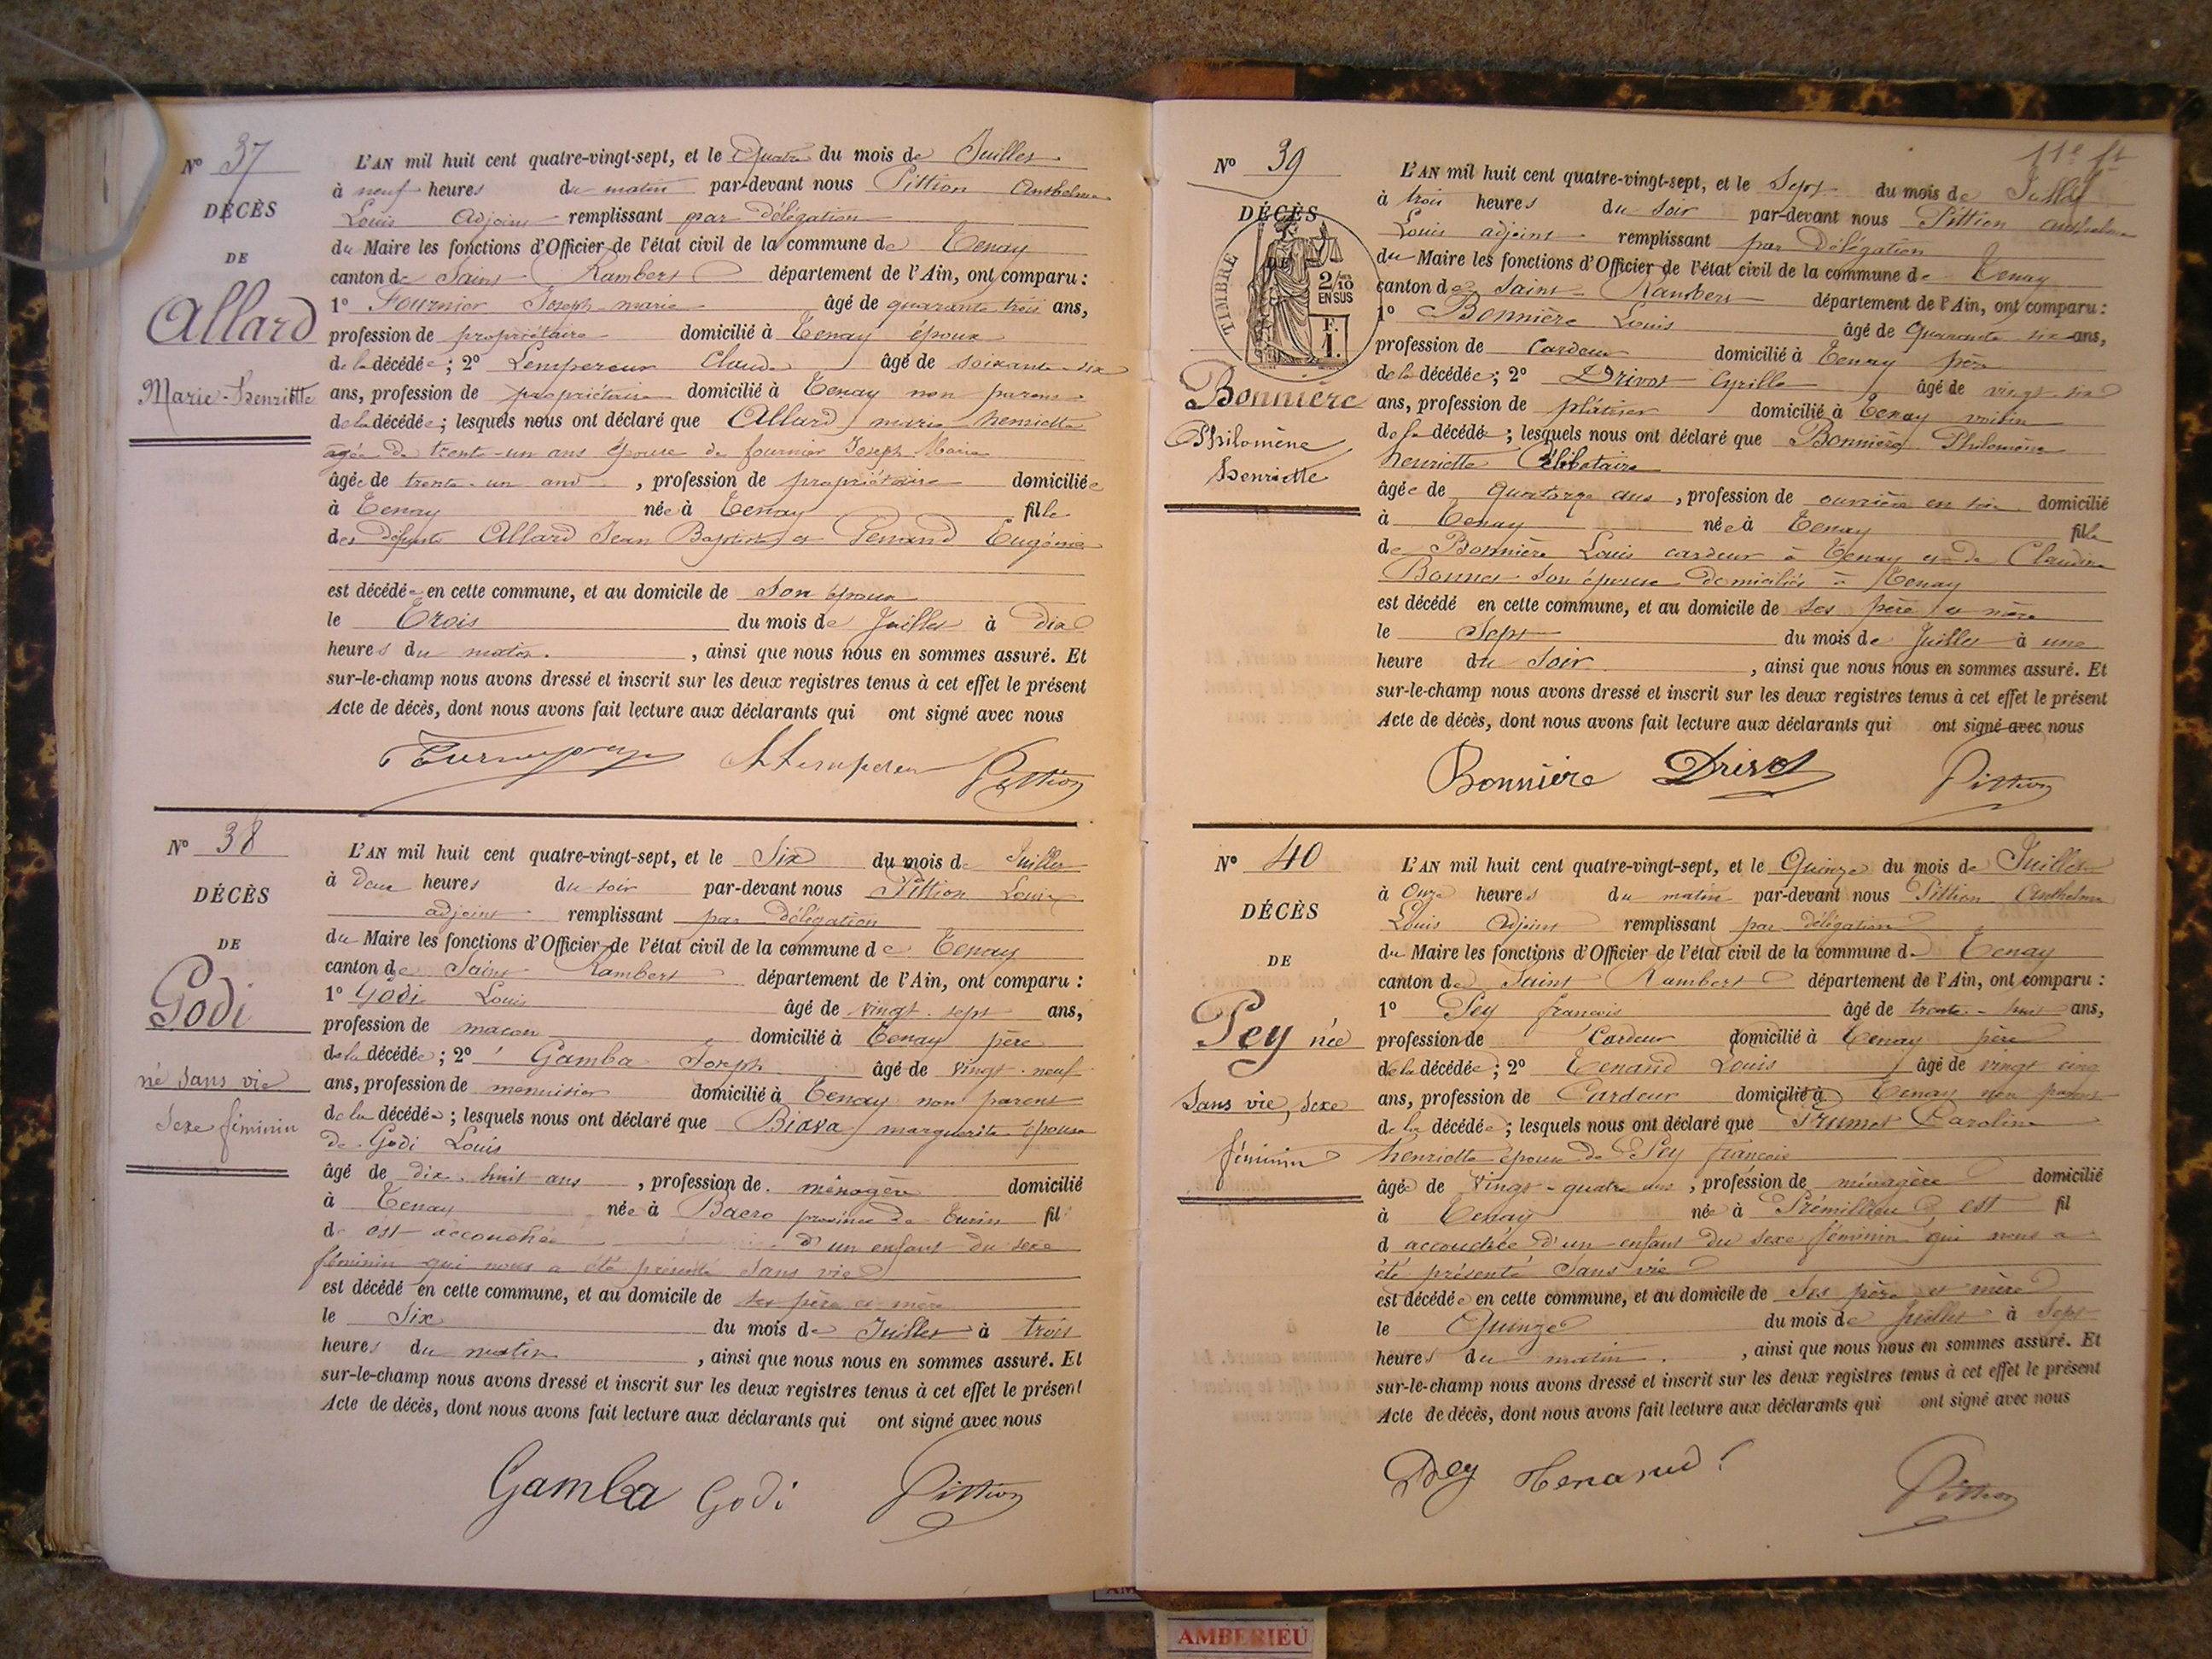 N° 37
DÉCÈS
DE
Allard
Marie-Henriette
L'AN mil huit cent quatre-vingt-sept, et le Quatre du mois de Juillet
à neuf heures du matin par-devant nous Pittion Anthelme
Louis Adjoint remplissant par Délégation
du Maire les fonctions d'Officier de l'état civil de la commune de Tenay
canton de Saint Rambert département de l'Ain, ont comparu :
1° Fournier Joseph marie âgé de quarante trois ans,
profession de propriétaire domicilié à Tenay époux
de la décédée ; 2° Lempereur Claude âgé de soixante-dix
ans, profession de propriétaire domicilié à Tenay non parent
de la décédée ; lesquels nous ont déclaré que Allard marie henriette
agée de trente-un ans épouse de fournier Joseph Marie
âgée de trente-un ans, profession de propriétaire domiciliée
à Tenay née à Tenay fille
des défunts Allard Jean Baptiste et Eugénie
est décédée en cette commune, et au domicile de son époux
le Trois du mois de Juillet à dix
heures du matin, ainsi que nous nous en sommes assuré. Et
sur-le-champ nous avons dressé et inscrit sur les deux registres tenus à cet effet le présent
Acte de décès, dont nous avons fait lecture aux déclarants qui ont signé avec nous
Pittion
N° 38
DÉCÈS
DE
Godi
né sans vie
Sexe féminin
L'AN mil huit cent quatre-vingt-sept, et le Six du mois de Juillet
à deux heures du soir par-devant nous Pittion Louis
adjoint remplissant par Délégation
du Maire les fonctions d'Officier de l'état civil de la commune de Tenay
canton de Saint Rambert département de l'Ain, ont comparu :
1° Godi Louis âgé de vingt-sept ans,
profession de maçon domicilié à Tenay père
de la décédée ; 2° Gamba Joseph âgé de vingt-neuf
ans, profession de menuisier domicilié à Tenay non parent
de la décédée ; lesquels nous ont déclaré que Biava marguerite épouse
de Godi Louis
âgé de dix-huit ans, profession de ménagère domicilié
à Tenay née à Baero province de Turin fil
d est accouchée d'un enfant du sexe
féminin qui nous a été présenté sans vie
est décédé en cette commune, et au domicile de ses père et mère
le Six du mois de Juillet à trois
heures du matin, ainsi que nous nous en sommes assuré. Et
sur-le-champ nous avons dressé et inscrit sur les deux registres tenus à cet effet le présent
Acte de décès, dont nous avons fait lecture aux déclarants qui ont signé avec nous
Gamba Godi Pittion
11e ft
N° 39
DÉCÈS
DE
TIMBRE
2/10 EN SUS
F. 1.
Bonnière
Philomène
Henriette
L'AN mil huit cent quatre-vingt-sept, et le Sept du mois de Juillet
à trois heures du soir par-devant nous Pittion anthelme
Louis adjoint remplissant par Délégation
du Maire les fonctions d'Officier de l'état civil de la commune de Tenay
canton de Saint-Rambert département de l'Ain, ont comparu :
1° Bonnière Louis âgé de quarante ans,
profession de cardeur domicilié à Tenay père
de la décédée ; 2° Drivot Cyrille âgé de vingt
ans, profession de plâtrier domicilié à Tenay voisin
de la décédé ; lesquels nous ont déclaré que Bonnière Philomène
henriette Célibataire
âgée de quatorze ans, profession de ouvrière en soie domicilié
à Tenay née à Tenay fille
de Bonnière Louis cardeur à Tenay et de Claudine
Bonnet son épouse domiciliés à Tenay
est décédé en cette commune, et au domicile de ses père et mère
le Sept du mois de Juillet à une
heure du soir, ainsi que nous nous en sommes assuré. Et
sur-le-champ nous avons dressé et inscrit sur les deux registres tenus à cet effet le présent
Acte de décès, dont nous avons fait lecture aux déclarants qui ont signé avec nous
Bonnière Drivot Pittion
N° 40
DÉCÈS
DE
Pey née
Sans vie, Sexe
féminin
L'AN mil huit cent quatre-vingt-sept, et le Quinze du mois de Juillet
à Onze heures du matin par-devant nous Pittion Anthelme
Louis Adjoint remplissant par délégation
du Maire les fonctions d'Officier de l'état civil de la commune d. Tenay
canton de Saint Rambert département de l'Ain, ont comparu :
1° Pey françois âgé de trente-huit ans,
profession de Cardeur domicilié à Tenay père
de la décédée ; 2° Tenand Louis âgé de vingt cinq
ans, profession de Cardeur domicilié à Tenay non parent
de la décédée ; lesquels nous ont déclaré que Trumet Caroline
henriette épouse de Pey françois
âgée de vingt-quatre ans, profession de ménagère domicilié
à Tenay née à Prémillieu est fil
d accouchée d'un enfant du sexe féminin qui nous a
été présenté sans vie
est décédée en cette commune, et au domicile de Ses père et mère
le Quinze du mois de juillet à Sept
heures du matin, ainsi que nous nous en sommes assuré. Et
sur-le-champ nous avons dressé et inscrit sur les deux registres tenus à cet effet le présent
Acte de décès, dont nous avons fait lecture aux déclarants qui ont signé avec nous
Pey Tenand Pittion
AMBERIEU